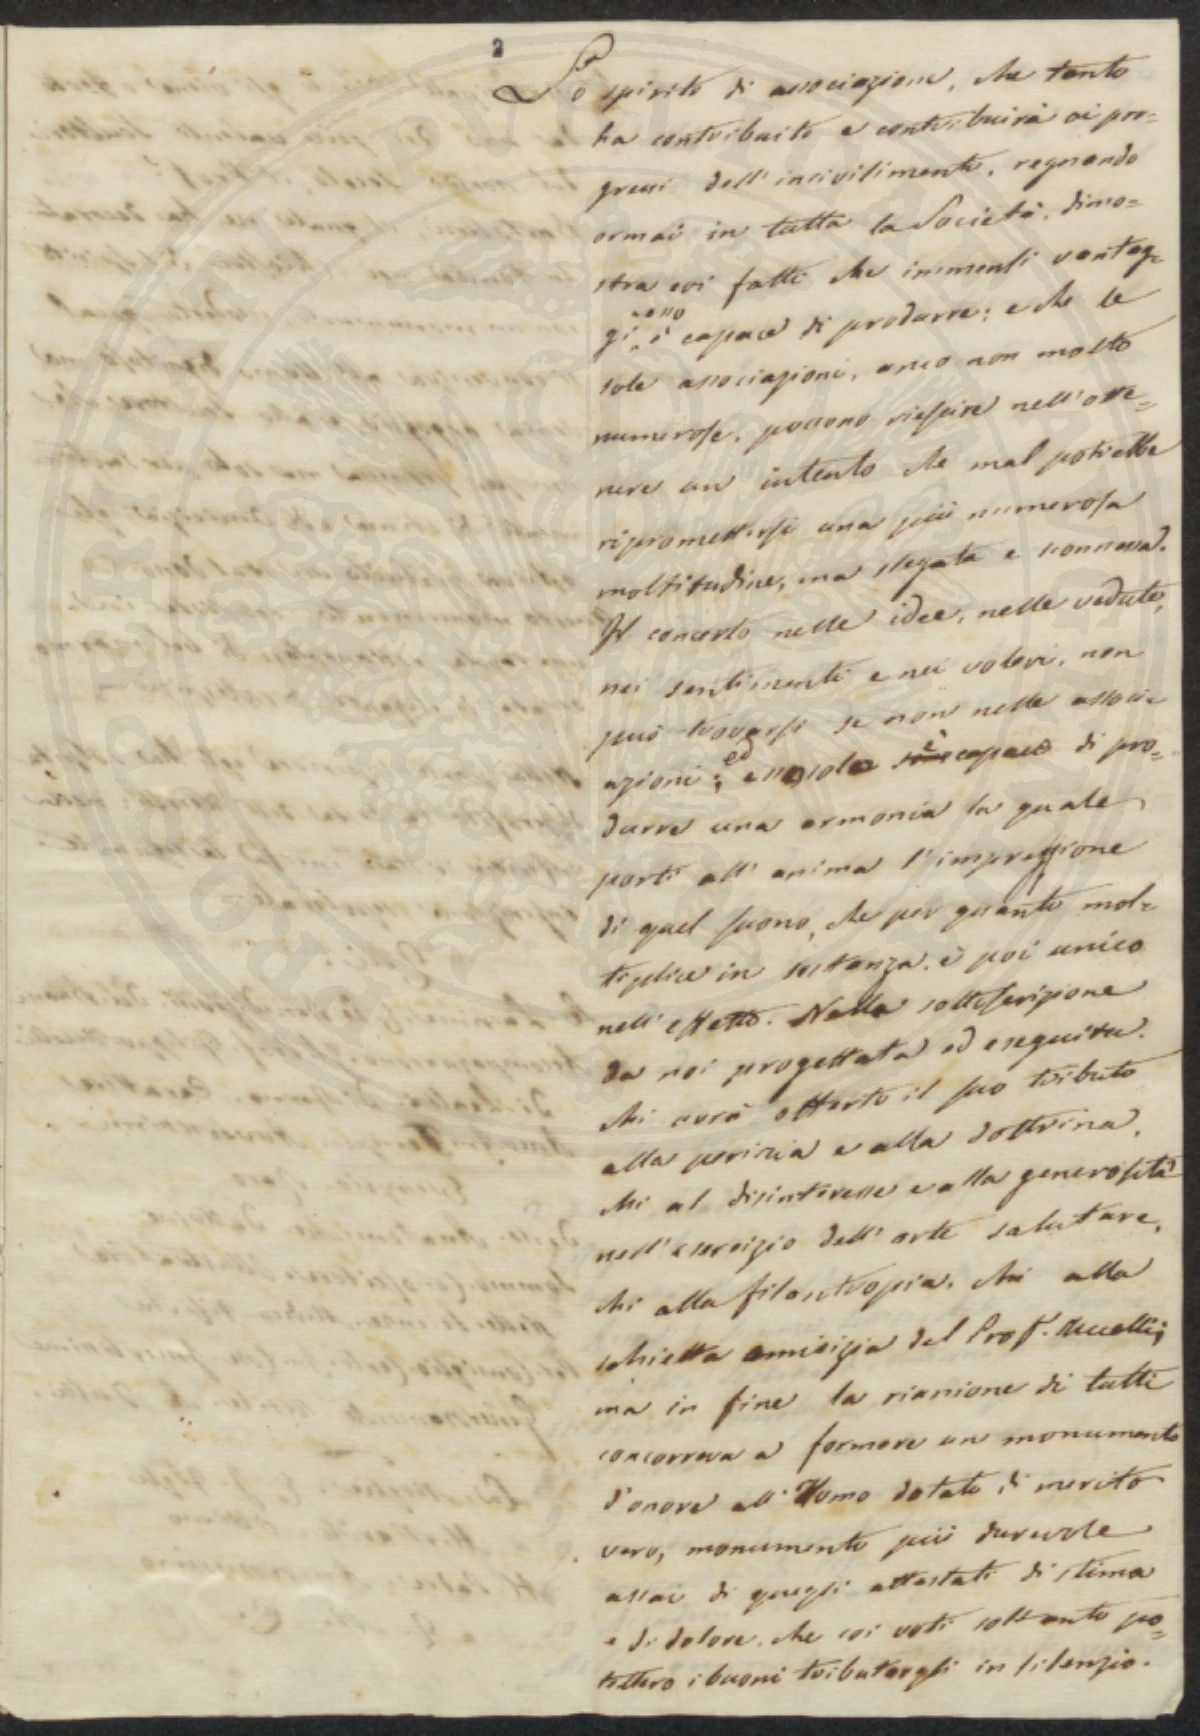 2
Lo spirito di associazione, che tanto
ha contribuito e contribuirà ai pro=
gressi dell'incivilimento, regnando
ormai in tutta la Società, dimo=
stra coi fatti che immensi vantag=
gi esso è capace di produrre: e che le
sole associazioni, anco non molto
numerose, possono riescire nell'otte=
nere un intento che mal potrebbe
ripromettersi una più numerosa
moltitudine, ma slegata e sconnessa.
Il concerto nelle idee, nelle vedute,
nei sentimenti e nei voleri, non
può trovarsi se non nelle associ=
azioni; ed esso solo è capace di pro=
durre una armonia la quale
porti all'anima l'impressione
di quel suono, che per quanto mol=
tiplice in sostanza, è poi unico
nell'effetto. Nella sottoscrizione
da noi progettata ed eseguita.
chi avrà offerto il suo tributo
alla perizia e alla dottrina,
chi al disinteresse e alla generosità
nell'esercizio dell'arte salutare,
chi alla filantropia, chi alla
schietta amicizia del Prof. Uccelli;
ma in fine la riunione di tutti
concorreva a formare un monumento
d'onore all'Uomo dotato di merito
vero, monumento più durevole
assai di quegli attestati di stima
e di dolore, che coi voti soltanto po=
tettero i buoni tributargli in silenzio.